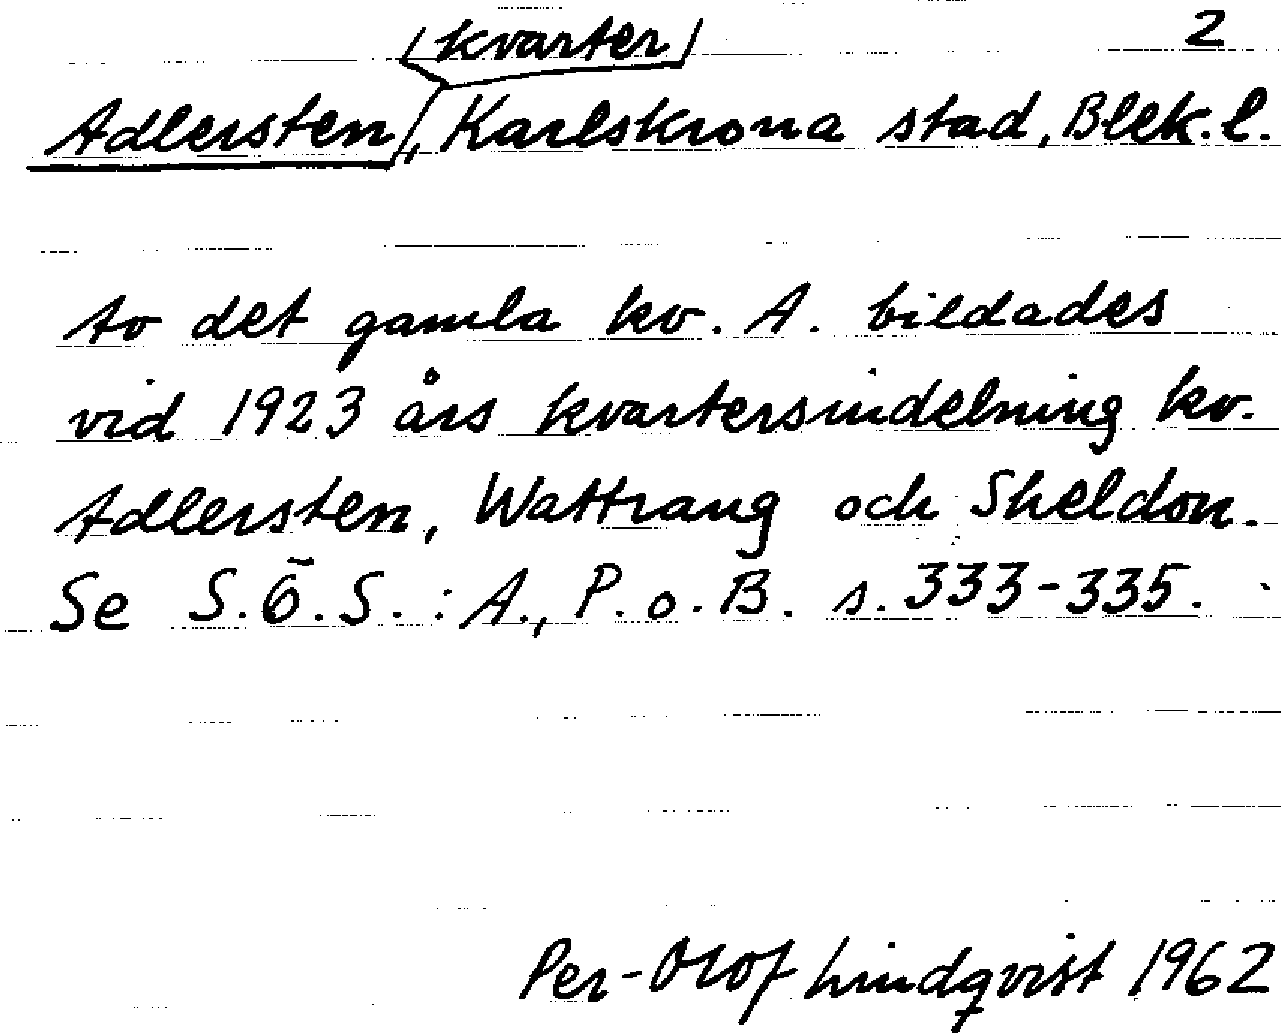 /kvarter/ 2
Adlersten, Karlskrona stad, Blek. l.
to det gamla kv. A. bildades
vid 1923 års kvartersindelning kv.
Adlersten, Wattrang och Sheldon.
Se S.Ö.S.: A., P. o. B. s. 333-335.
Per-Olof Lindqvist 1962